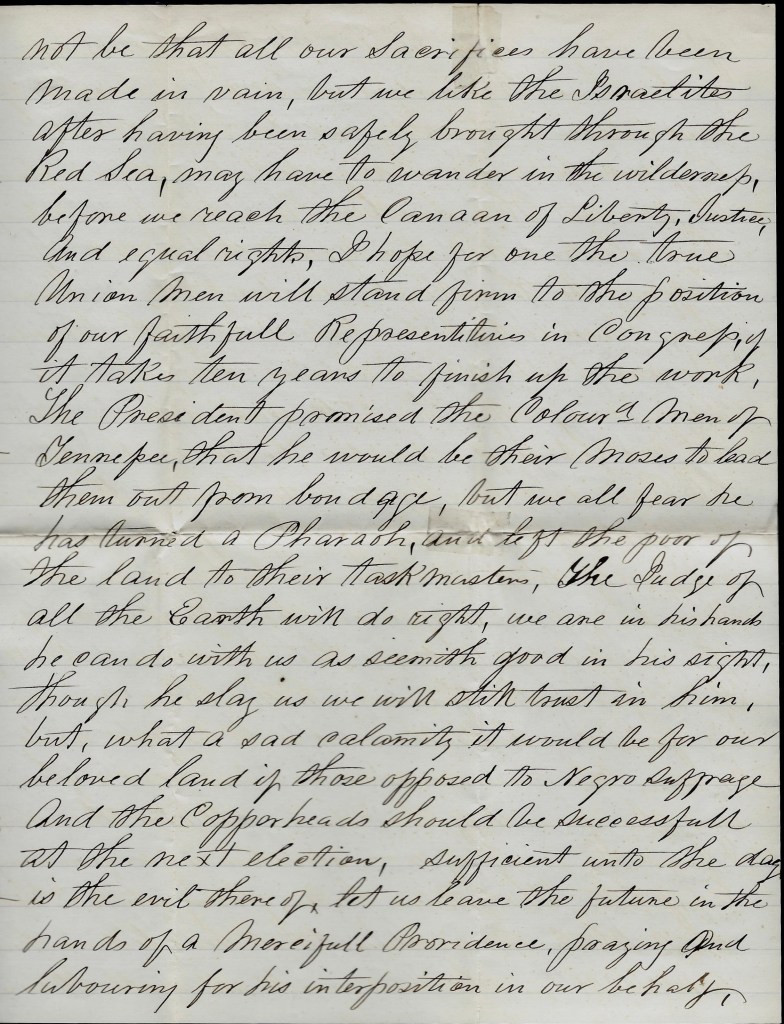 not be that all our Sacrifices have been
made in vain, but we like the Israelites
after having been safely brought through the
Red Sea, may have to wander in the wilderness,
before we reach the Canaan of Liberty, Justice,
And equal rights, I hope for one the true
Union Men will stand firm to the position
of our faithfull Representitives in Congress, if
it takes ten years to finish up the work,
The President promised the Colourd Men of
Tennessee, that he would be their Moses to lead
them out from bondage, but we all fear he
has turned a Pharaoh, and left the poor of
the land to their taskmasters, The Judge of
all the Earth will do right, we are in his hands
he can do with us as seemith good in his sight,
though he slay us we will still trust in him,
but, what a sad calamity it would be for our
beloved land if those opposed to Negro suffrage
And the Copperheads should be successfull
at the next election, sufficient unto the day
is the evil thereof, let us leave the future in the
hands of a Mercifull Providence, praying And
labouring for his interposition in our behalf,